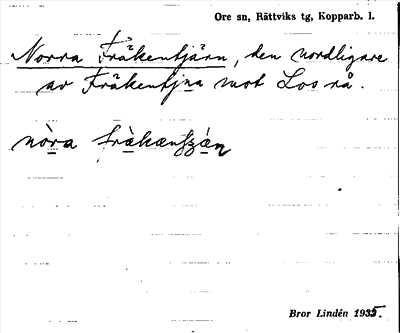 Ore sn, Rättviks tg, Kopparb. l.
Norra Fräkentjärn, den nordligare
av Fräkentjna mot Loo rå.
Bror Lindén 1935.